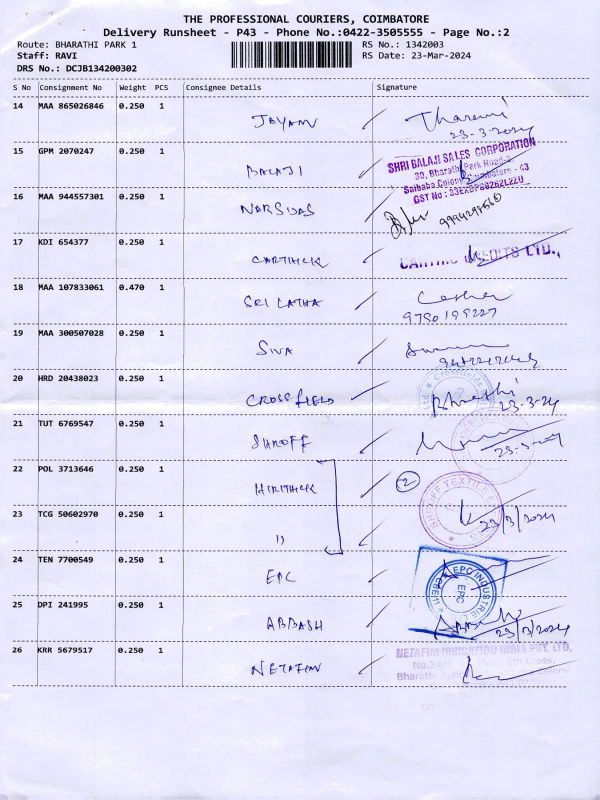 THE PROFESSIONAL COURIERS, COIMBATORE
Delivery Runsheet - P43 - Phone No.:0422-3505555 - Page No.:2
Route: BHARATHI PARK 1 RS No.: 1342003
Staff: RAVI RS Date: 23-Mar-2024
DRS No.: DCJB134200302
S No Consignment No Weight PCS Consignee Details Signature
14 MAA 865026846 0.250 1
JAYAM
23-3-2024
15 GPM 2070247 0.250 1
BALAJI
SHRI BALAJI SALES CORPORATION
30, Bharathi Park Road-2,
Saibaba Colony, Coimbatore - 43
16 MAA 944557301 0.250 1
NARSUAS
17 KDI 654377 0.250 1
CARTHICK
LTD.,
18 MAA 107833061 0.470 1
SRI LATHA
9790199227
19 MAA 300507028 0.250 1
SIVA
20 HRD 20438023 0.250 1
CROSSFIELD
23-3-24
21 TUT 6769547 0.250 1
SHROFF
22 POL 3713646 0.250 1
HIRITHICK
2
23 TCG 50602970 0.250 1
11
23/3/2024
24 TEN 7700549 0.250 1
EPC
EPC INDUSTRIE
EPC
25 DPI 241995 0.250 1
ABBASH
23/3/2024
26 KRR 5679517 0.250 1
NETAFIM
NETAFIM IRRIGATION INDIA PVT. LTD.